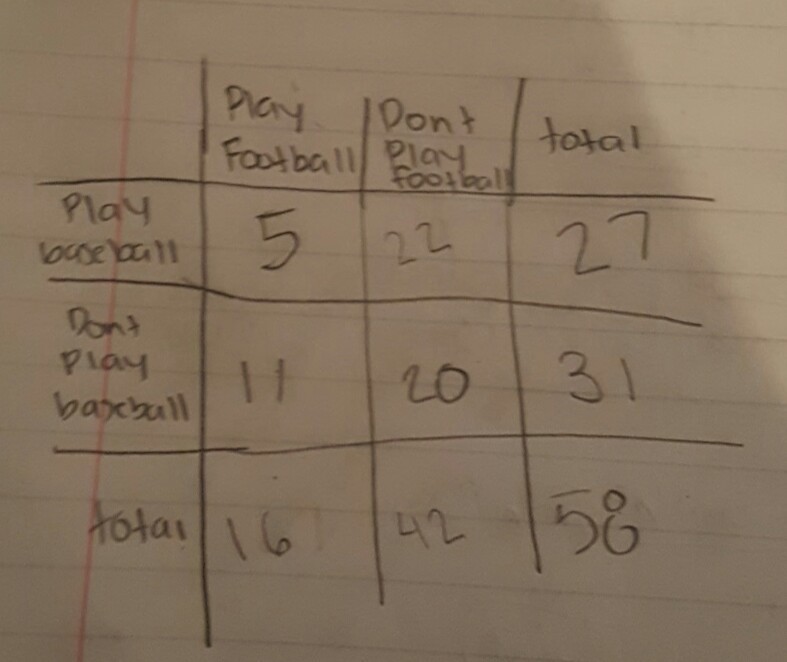 Play Football | Dont Play football | total
Play baseball | 5 | 22 | 27
Dont Play baseball | 11 | 20 | 31
total | 16 | 42 | 58